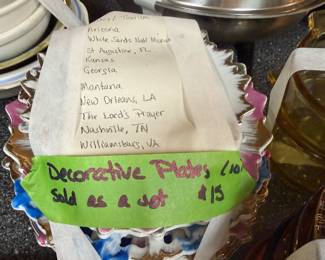 Arizona
White Sands Natl Monut
St Augustine, FL
Kansas
Georgia
Montana
New Orleans, LA
The Lord's Prayer
Nashville, TN
Williamsburg, VA
Decorative Plates (10)
Sold as a set $15